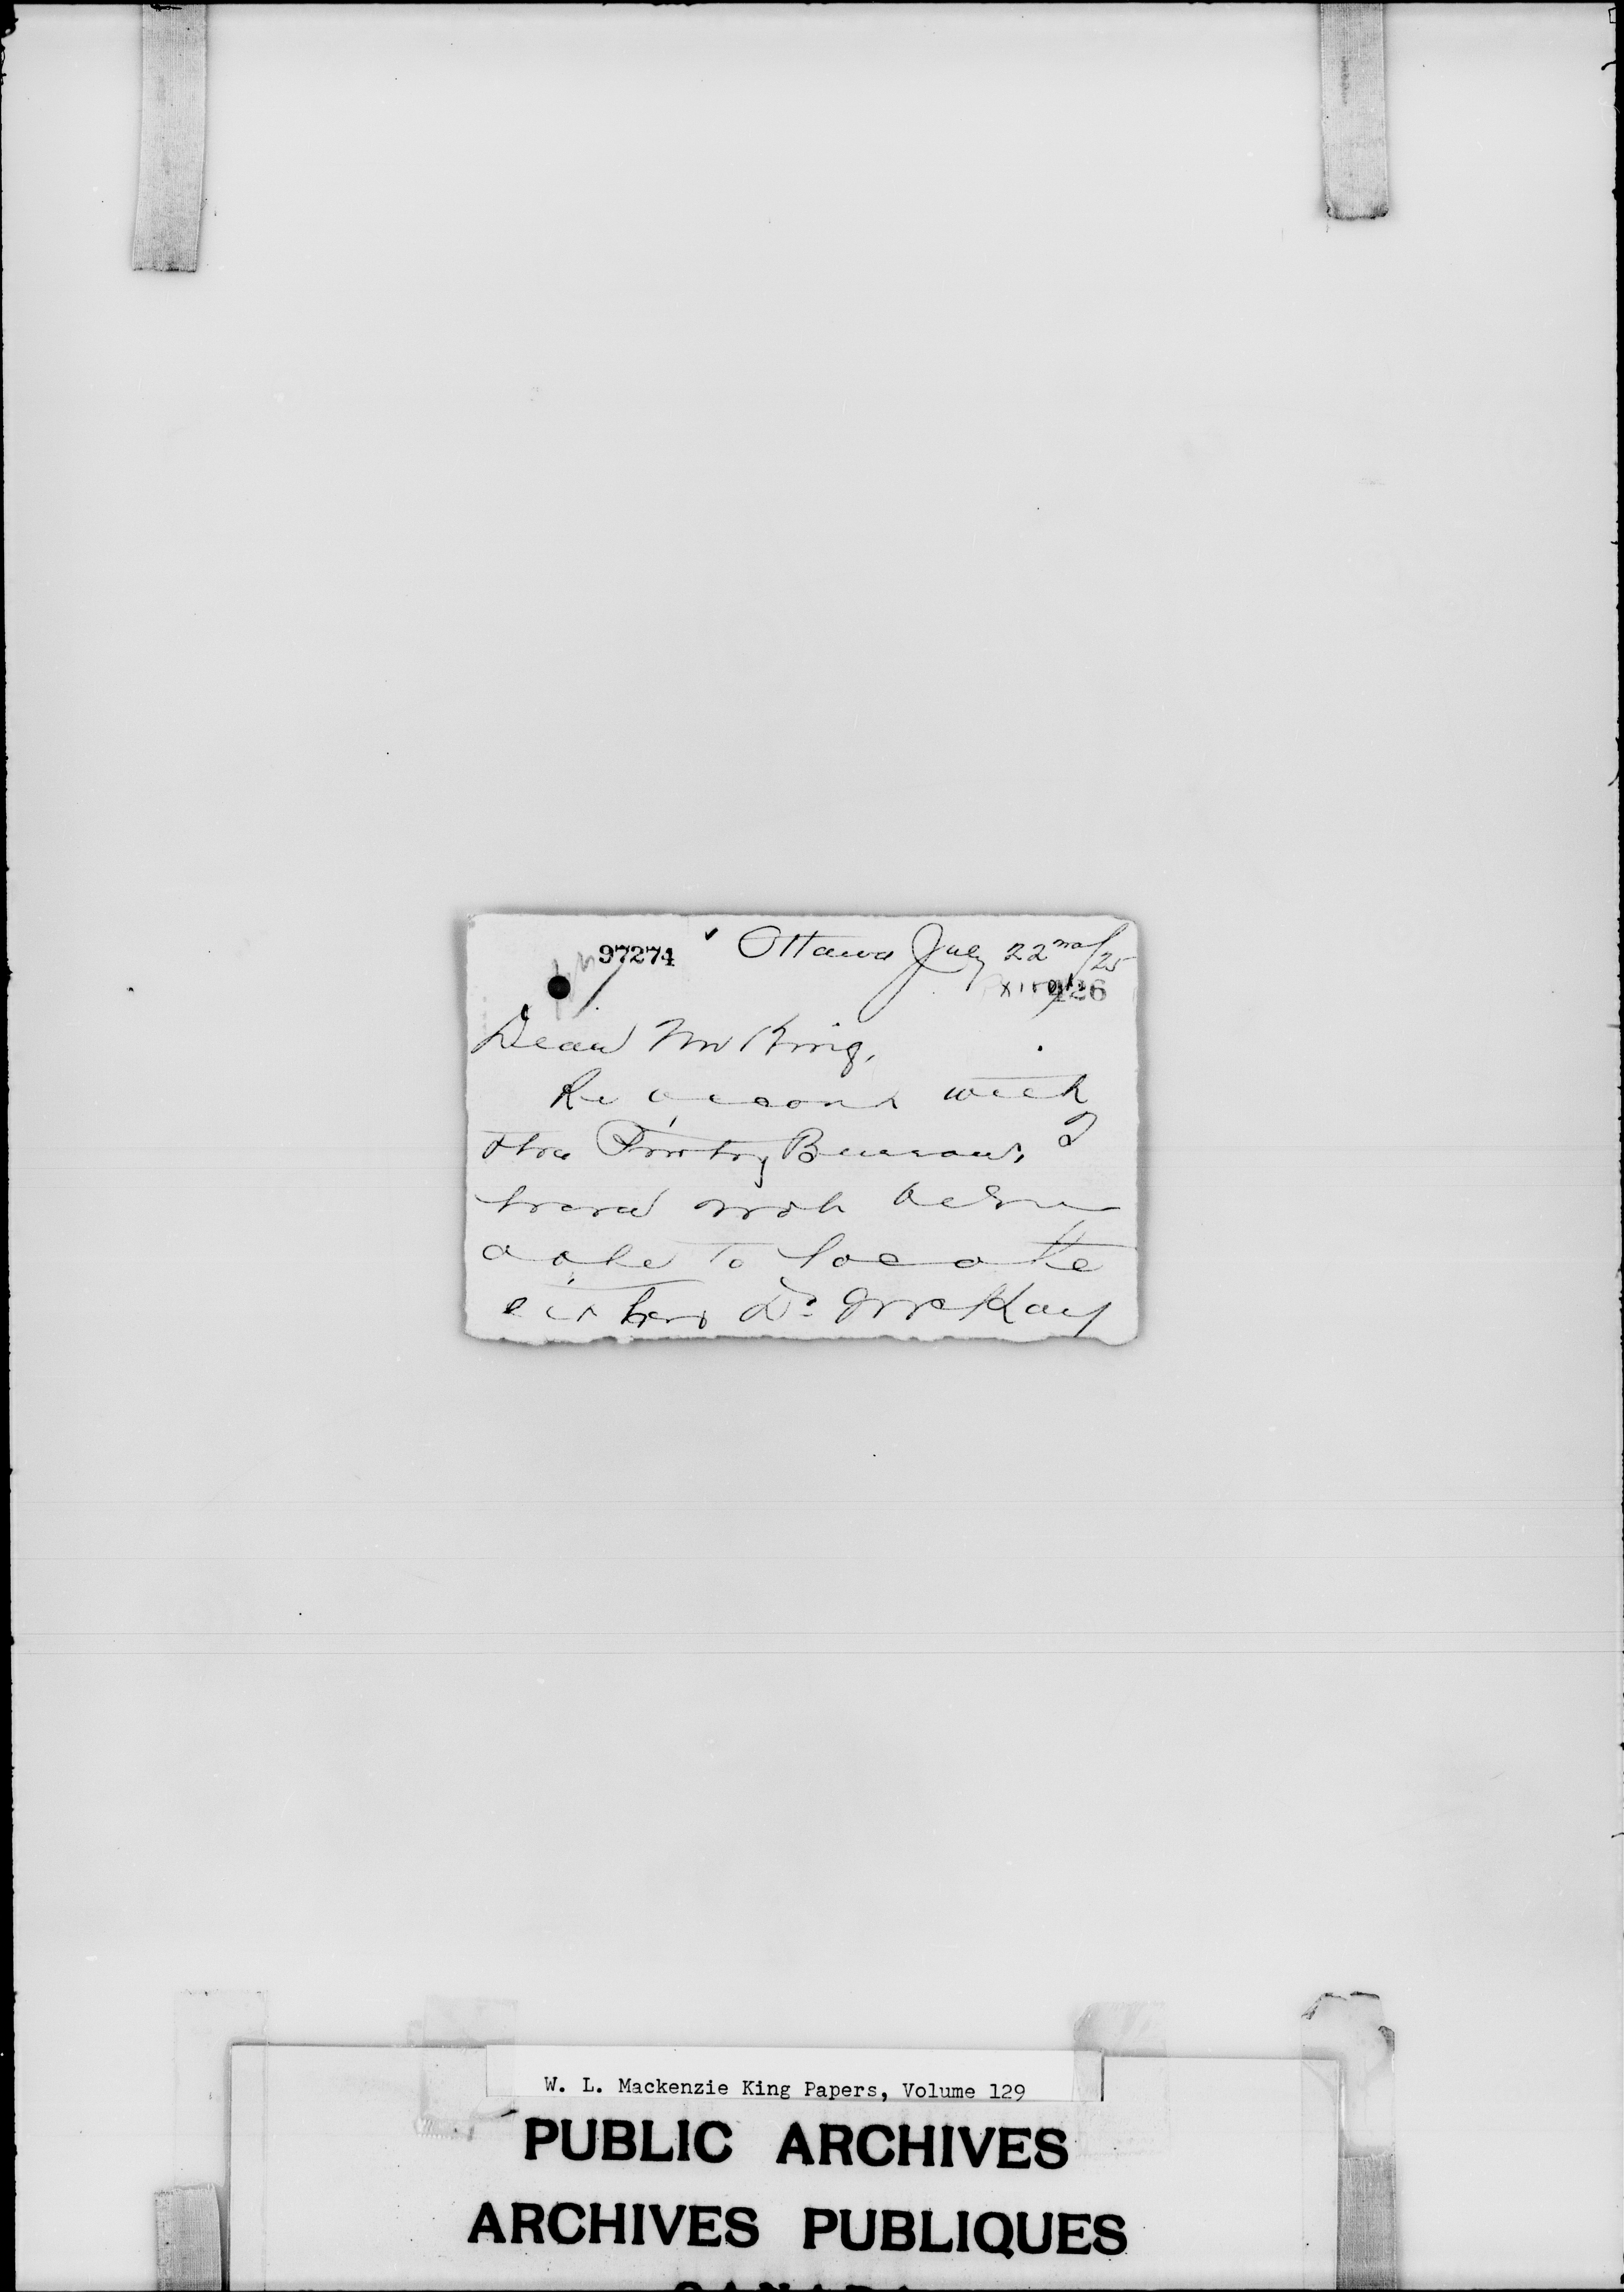 97274 Ottawa July 22nd/25
126
Dear Mr King,
Re account with
the Printing Bureau, I
have not been
able to locate
either Dr. McKay
W. L. Mackenzie King Papers, Volume 129
PUBLIC ARCHIVES
ARCHIVES PUBLIQUES
CANADA